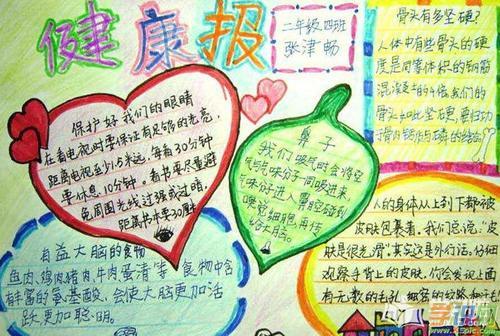 健康报
二年级四班
张津畅
保护好我们的眼睛
在看电视时要保证有足够的光亮,
距离电视至少1.5米远,每看30分钟
要休息10分钟。看书要尽量避
免周围光线过强或过暗,
距离书本要30厘米
鼻子
我们吸气时会将空
气与气味分子一同吸进来,
气味分子进入鼻腔碰到
嗅觉细胞再传
给大脑。
骨头有多坚硬?
人体中有些骨头的硬
度是同等体积的钢筋
混凝土的十倍我们的
骨头如此坚硬,要归功
有益大脑的食物
鱼肉,鸡肉猪肉,牛肉蛋清等食物中含
丰富的氨基酸,会使大脑更加活
跃,更加聪明。
人的身体从上到下都被
皮肤包裹着。我们总说:"皮
肤是很光滑"其实这是外行话。仔细
观察手背上的皮肤,你会发现上面
有无数的毛孔